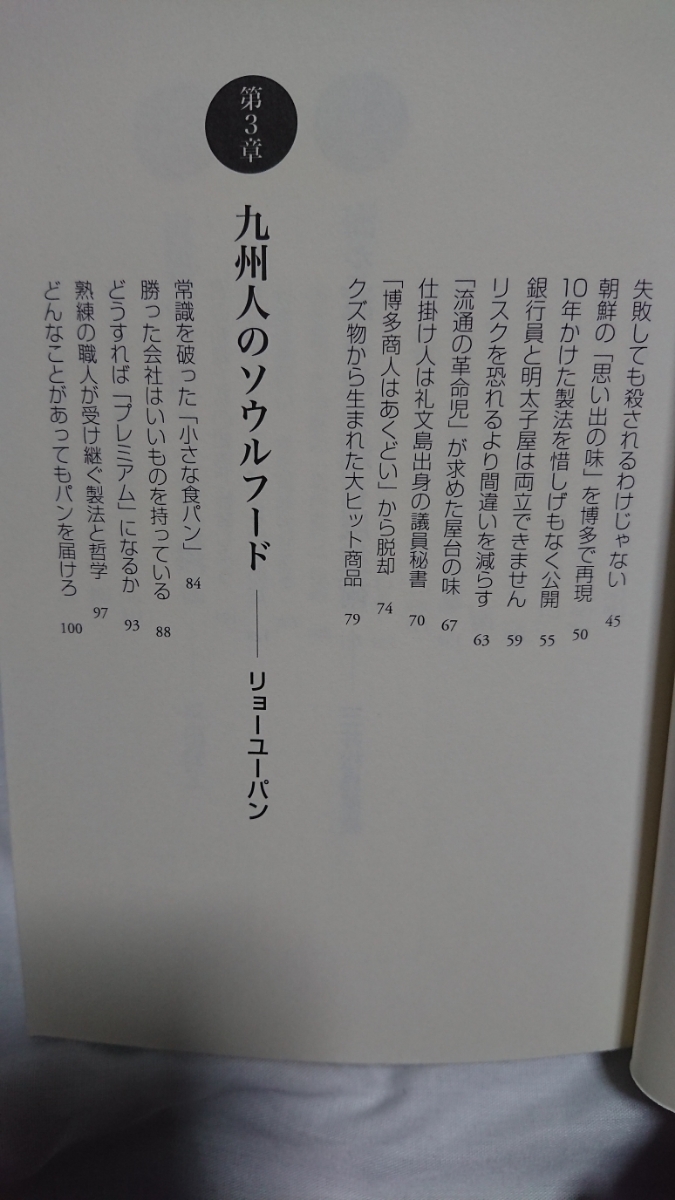 失敗しても殺されるわけじゃない 45
朝鮮の「思い出の味」を博多で再現 50
10年かけた製法を惜しげもなく公開 55
銀行員と明太子屋は両立できません 59
リスクを恐れるより間違いを減らす 63
「流通の革命児」が求めた屋台の味 67
仕掛け人は礼文島出身の議員秘書 70
「博多商人はあくどい」から脱却 74
クズ物から生まれた大ヒット商品 79
第3章
九州人のソウルフード――リョーユーパン
常識を破った「小さな食パン」 84
勝った会社はいいものを持っている 88
どうすれば「プレミアム」になるか 93
熟練の職人が受け継ぐ製法と哲学 97
どんなことがあってもパンを届けろ 100